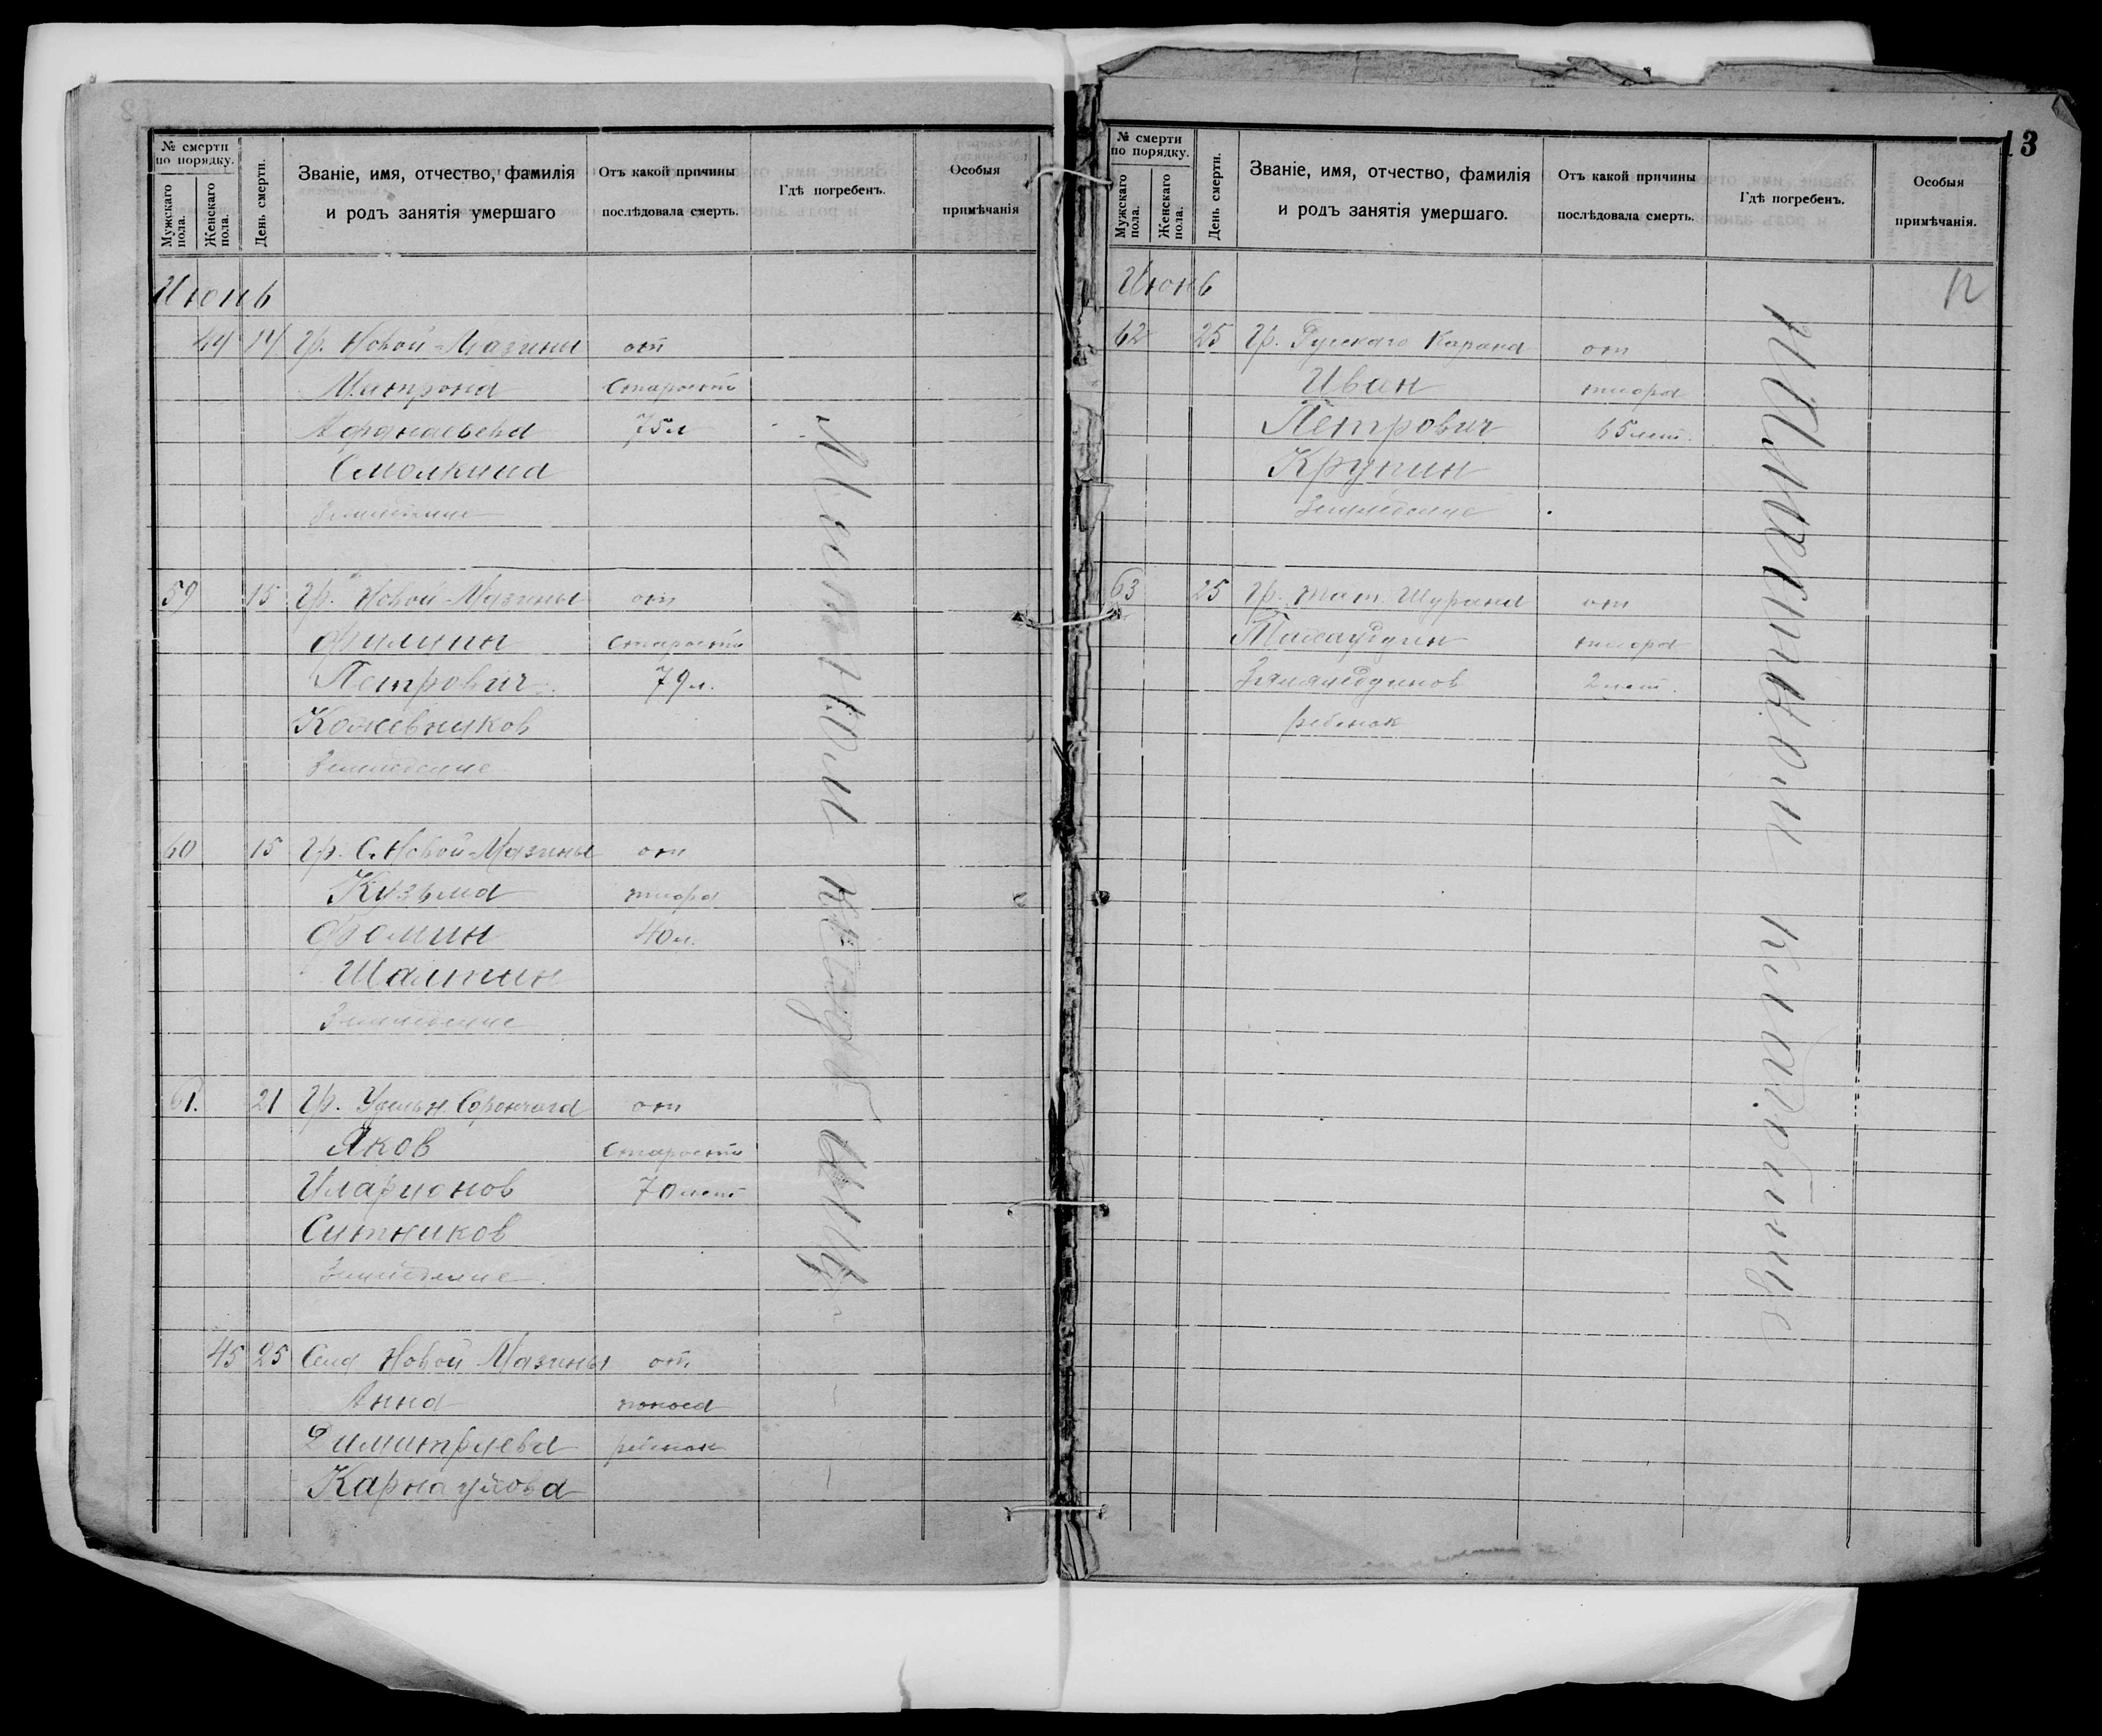 № смерти по порядку.
Мужскаго пола.
Женскаго пола.
День смерти.
Званіе, имя, отчество, фамилія
и родъ занятія умершаго
Отъ какой причины
послѣдовала смерть.
Гдѣ погребенъ.
Особыя
примѣчанія
Июнь
44 14 Гр. Новой-Мазины от
Матрона старости
Афанасьевна 75 л
Смолкина
Земледелие
59 15 Гр. Новой-Мазины от
Филипп старости
Петрович 79 л.
Кожевников
Земледелие
60 15 Гр. С. Новой-Мазины от
Кузьма тифа
Фомин 40 л.
Шалтин
Земледелие
61. 21 Гр. Удельн. от
Яков старости
Иларионов 70 лет
Ситников
Земледелие
45 25 Села Новой Мазины от
Анна поноса
Димитриева ребенок
Карнаухова
Местном кладбище
13
№ смерти по порядку.
Мужскаго пола.
Женскаго пола.
День смерти.
Званіе, имя, отчество, фамилія
и родъ занятія умершаго.
Отъ какой причины
послѣдовала смерть.
Гдѣ погребенъ.
Особыя
примѣчанія.
Июнь 12
62 25 Гр. Русскаго от
Иван тифа
Петрович 65 лет.
Крупин
Земледелие
63 25 Гр. тат. Шурана от
тифа
2 лет.
ребенок
На местном кладбище